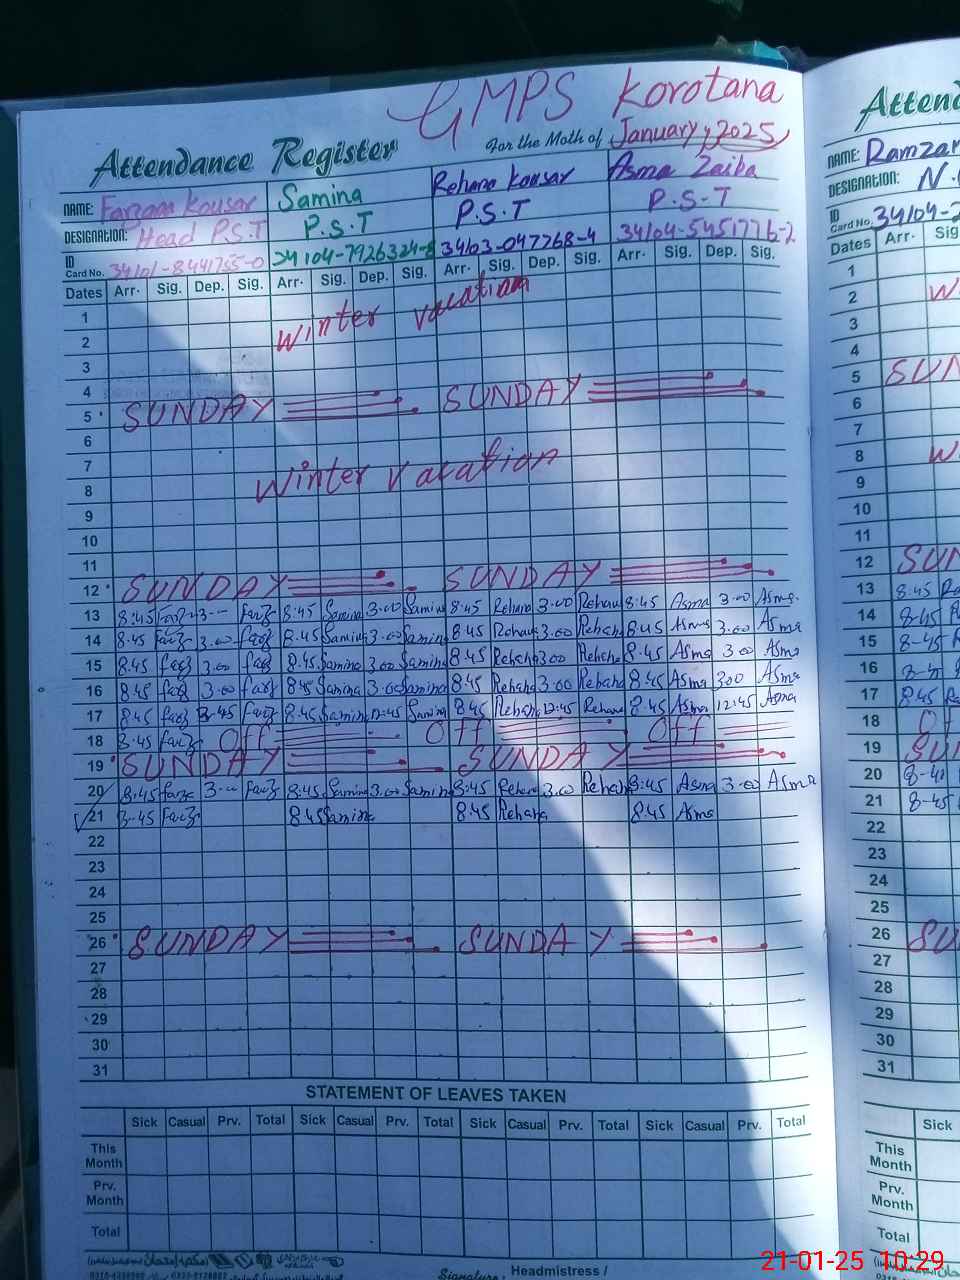 GMPS Korotana
Attendance Register For the Math of January, 2025
NAME: Farzam Kousar Samina Rehana Kousar Asma Zaiba
DESIGNATION: Head P.S.T P.S.T P.S.T P.S.T
ID Card No. 34101-8441755-0 34104-7926324-8 34103-047768-4 34104-5451776-2
Dates Arr. Sig. Dep. Sig. Arr. Sig. Dep. Sig. Arr. Sig. Dep. Sig. Arr. Sig. Dep. Sig.
1 Winter vacation
2
3
4
5 SUNDAY SUNDAY
6
7
8 Winter vacation
9
10
11
12 SUNDAY SUNDAY
13 8:45 farz 3-- farz 8:45 Samina 3.00 Samina 8:45 Rehana 3.00 Rehana 8:45 Asma 3.00 Asma
14 8.45 farz 3.00 farz 8.45 Samina 3.00 Samina 8:45 Rehana 3.00 Rehana 8:45 Asma 3.00 Asma
15 8.45 farz 3.00 farz 8.45 Samina 3.00 Samina 8:45 Rehana 3.00 Rehana 8.45 Asma 3.00 Asma
16 8.45 farz 3.00 farz 8:45 Samina 3.00 Samina 8:45 Rehana 3.00 Rehana 8.45 Asma 300 Asma
17 8.45 farz farz 8.45 Samina 12:45 Samina 8:45 Rehana 12:45 Rehana 8:45 Asma 12:45 Asma
18 8.45 farz Off Off Off
19 SUNDAY SUNDAY
20 8.45 farz 3.-- farz 8:45 Samina 3.00 Samina 8:45 Rehana 3.00 Rehana 8:45 Asma 3.00 Asma
21 8-45 Farz 8.45 Samina 8.45 Rehana 8.45 Asma
22
23
24
25
26 SUNDAY SUNDAY
27
28
29
30
31
STATEMENT OF LEAVES TAKEN
Sick Casual Prv. Total Sick Casual Prv. Total Sick Casual Prv. Total Sick Casual Prv. Total
This Month
Prv. Month
Total
Signature: Headmistress /
NAME: Ramzan
DESIGNATION: N.
ID Card No. 34104-2
Dates Arr. Sig
1
2
3
4
5 SUN
6
7
8
9
10
11
12 SUN
13 8.45
14 8-45
15 8-45
16
17 8.45
18 Of
19 SU
20
21 8-45
22
23
24
25
26 SU
27
28
29
30
31
Sick
This Month
Prv. Month
Total
21-01-25 10:29